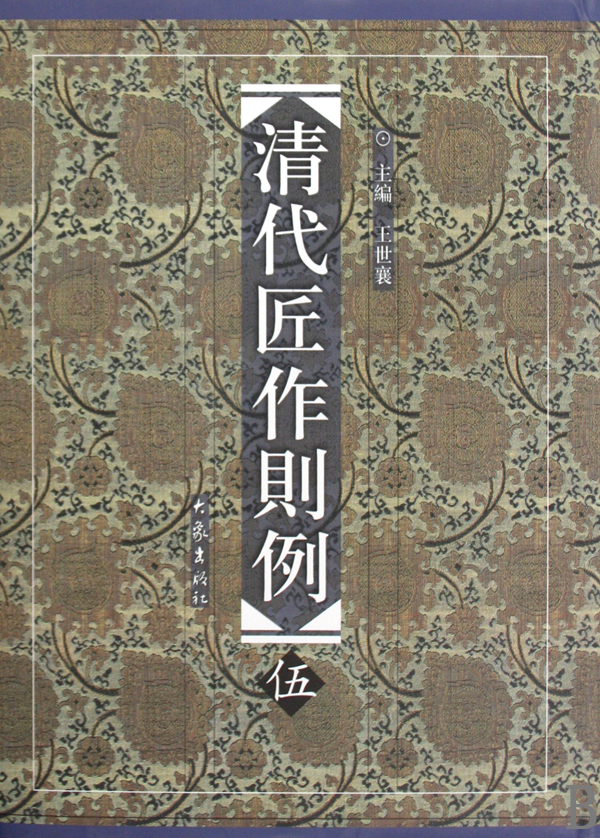 ⊙主編 王世襄
清代匠作則例
伍
大象出版社